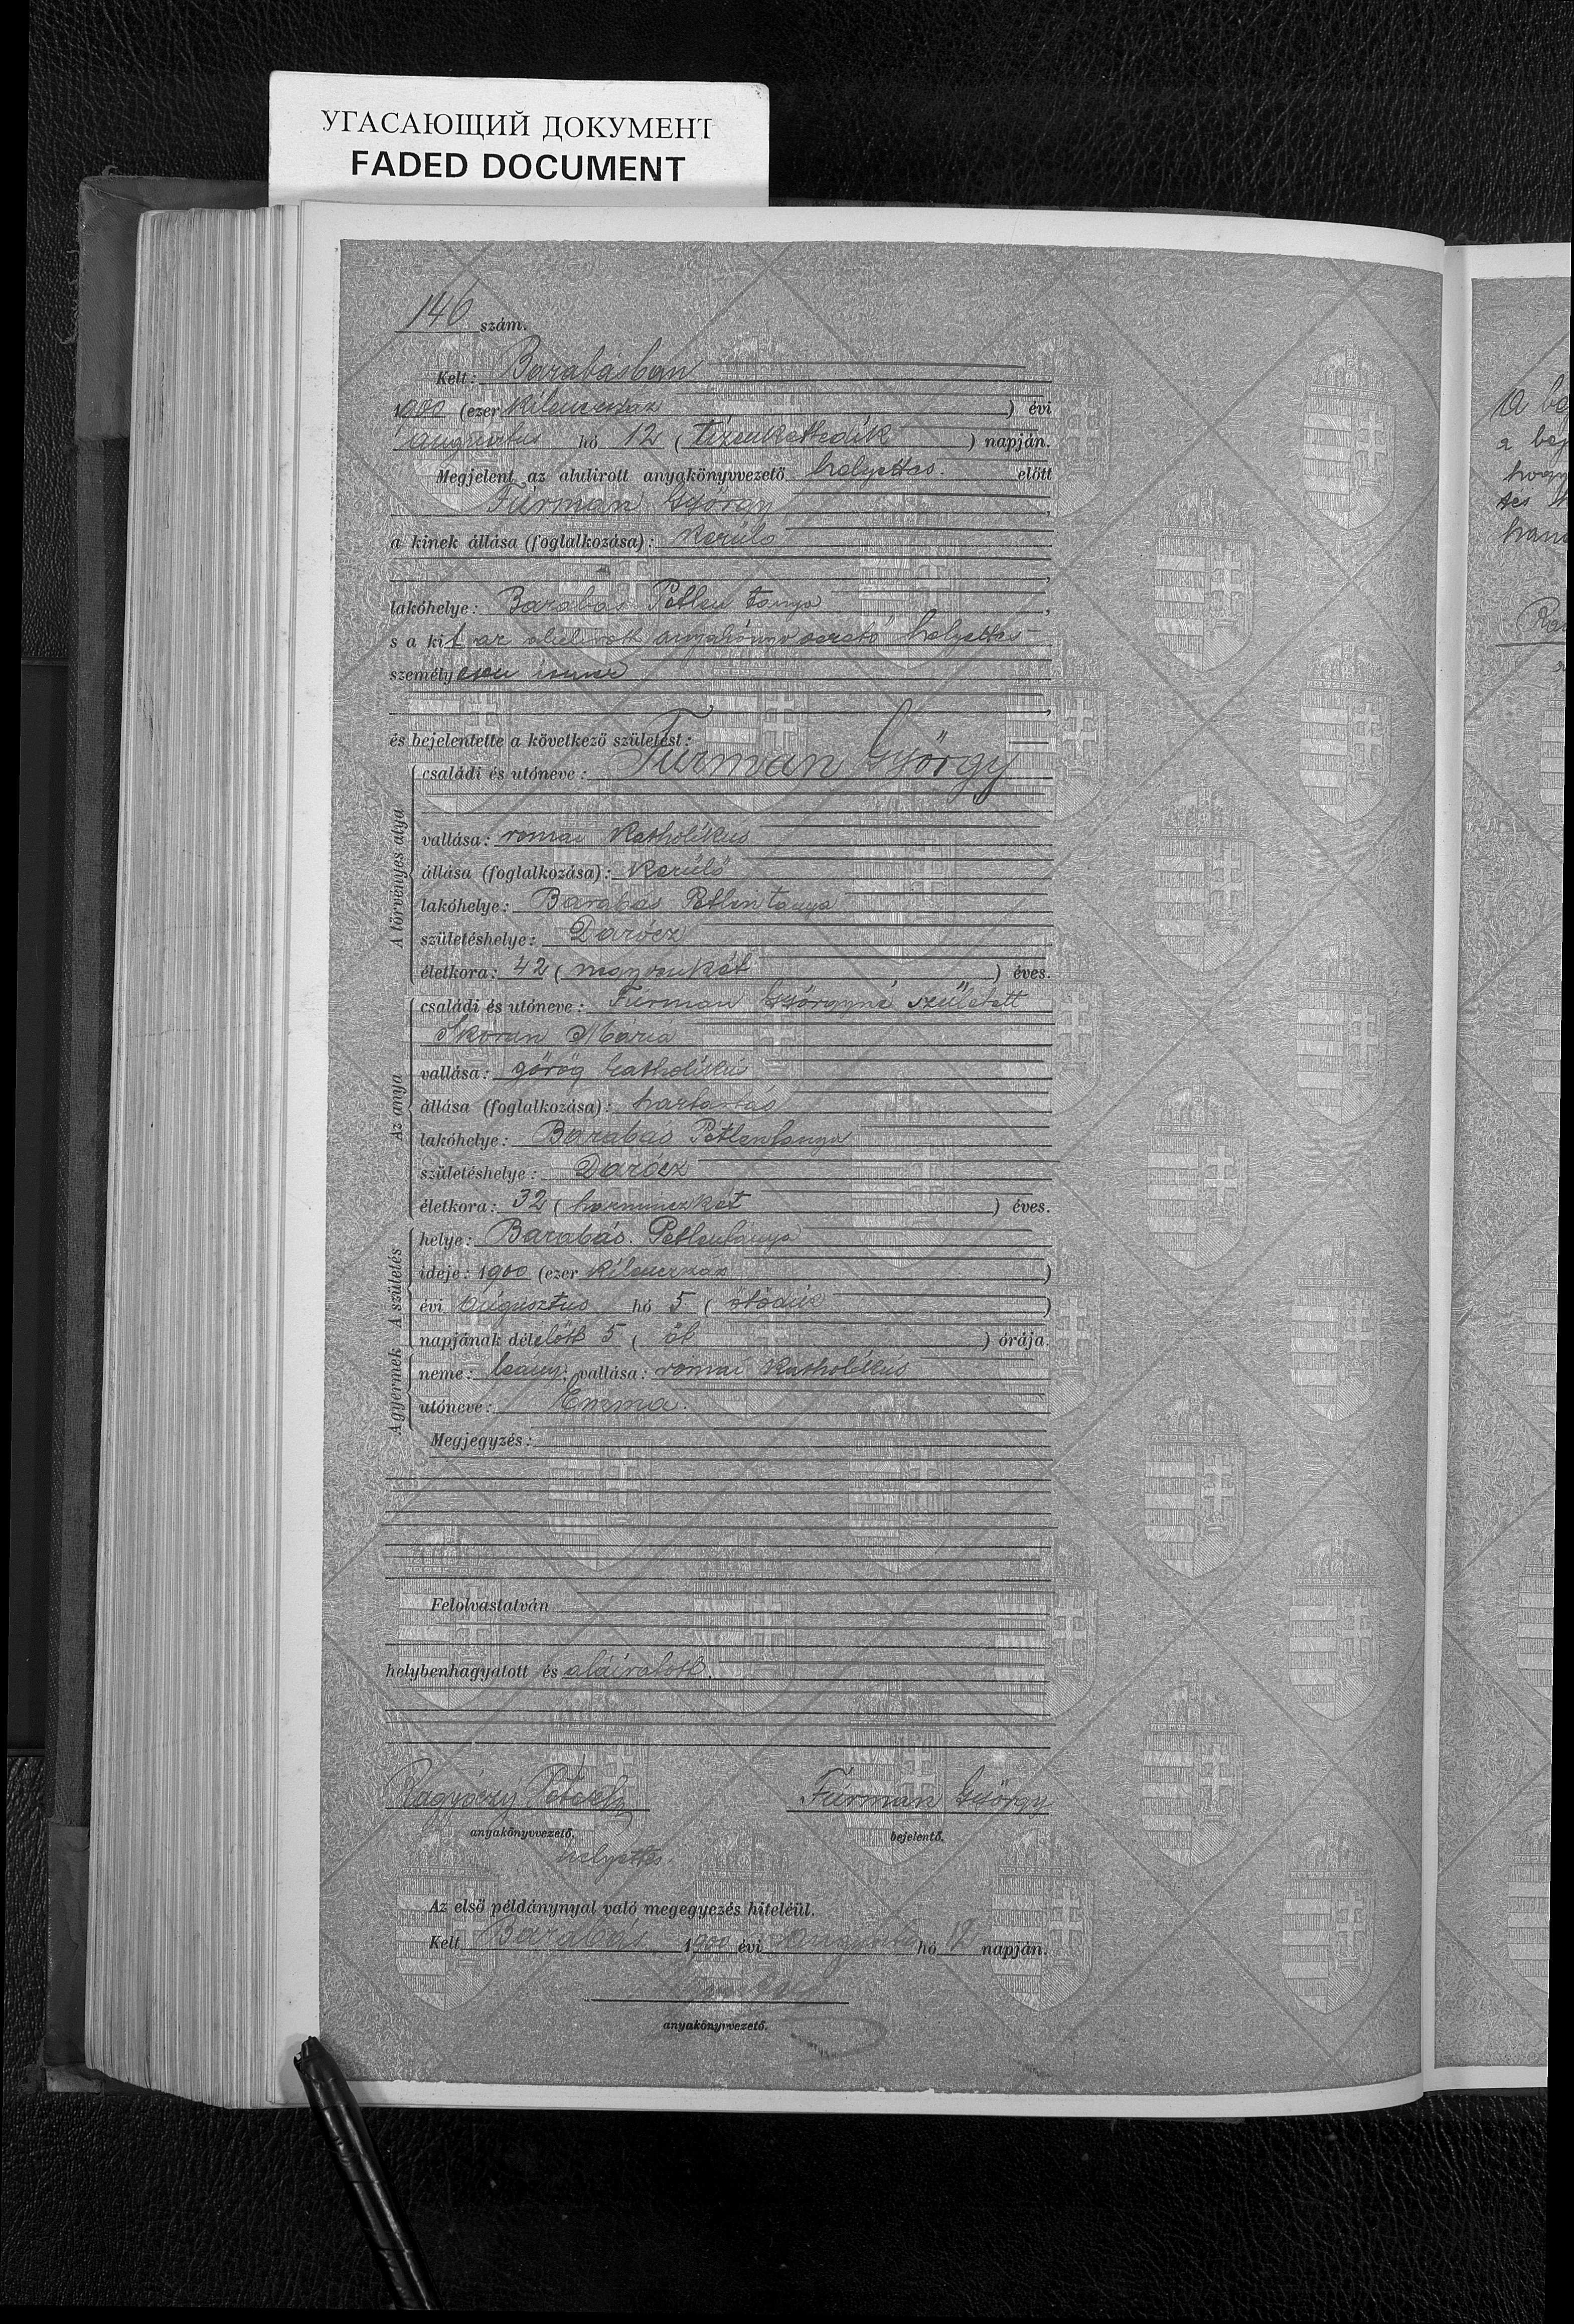 УГАСАЮЩИЙ ДОКУМЕНТ
FADED DOCUMENT
146 szám.
Kelt: Barabásban
1900 (ezer kilenczszáz ) évi
augusztus hó 12 ( tizenkettedik ) napján.
Megjelent az alulirott anyakönyvvezető helyettes előtt
Furman György,
a kinek állása (foglalkozása): kerülő
lakóhelye: Barabás Petlen tanya,
s a kit az alulirott anyakönyvvezető helyettes
személyesen ismer
és bejelentette a következő születést:
A törvényes atya
családi és utóneve: Furman György
vallása: római katholikus
állása (foglalkozása): kerülő
lakóhelye: Barabás Petlen tanya
születéshelye: Darócz
életkora: 42 ( negyvenkét ) éves.
Az anya
családi és utóneve: Furman Györgyné született
Skoran Mária
vallása: görög katholikus
állása (foglalkozása): háztartás
lakóhelye: Barabás Petlentanya
születéshelye: Darócz
életkora: 32 ( harminczkét ) éves.
A születés
helye: Barabás. Petlentanya
ideje: 1900 (ezer kilenczszáz )
évi augusztus hó 5 ( ötödik )
napjának délelőtt 5 ( öt ) órája.
A gyermek
neme: leány; vallása: római katholikus
utóneve: Emma.
Megjegyzés:
Felolvastatván
helybenhagyatott és aláiratott.
Furman György
anyakönyvvezető. bejelentő.
helyettes.
Az első példánynyal való megegyezés hiteléül.
Kelt Barabás 1900 évi augusztus hó 12 napján.
anyakönyvvezető.